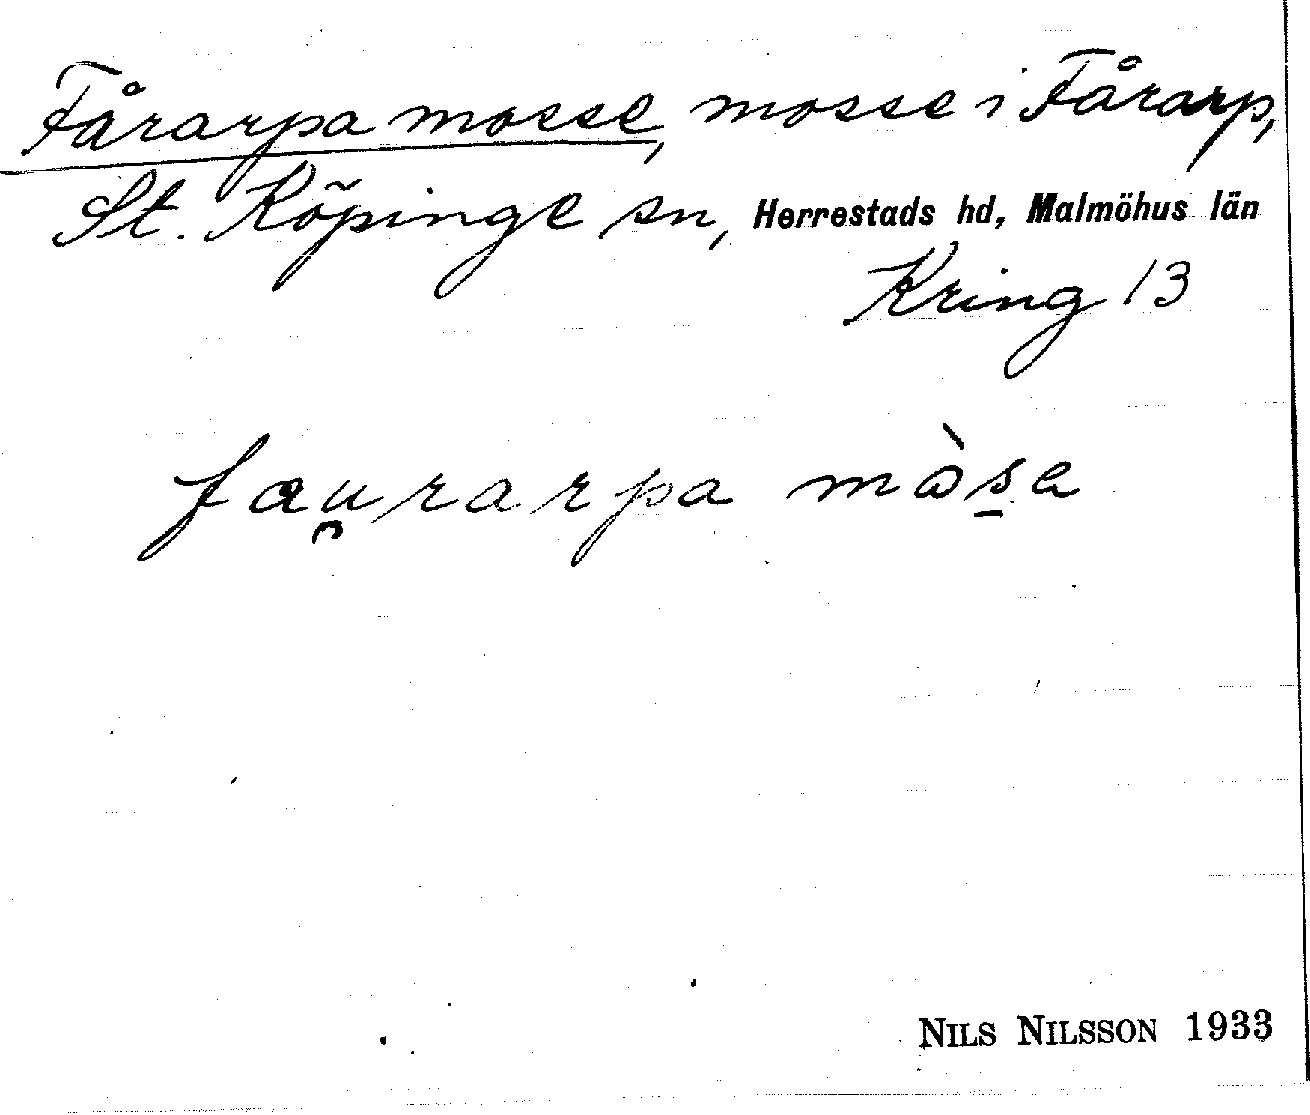 Fårarpa mosse, mosse i Fårarp,
St. Köpinge sn, Herrestads hd, Malmöhus län
Kring 13
fau̯rarpa mòs̠a
NILS NILSSON 1933